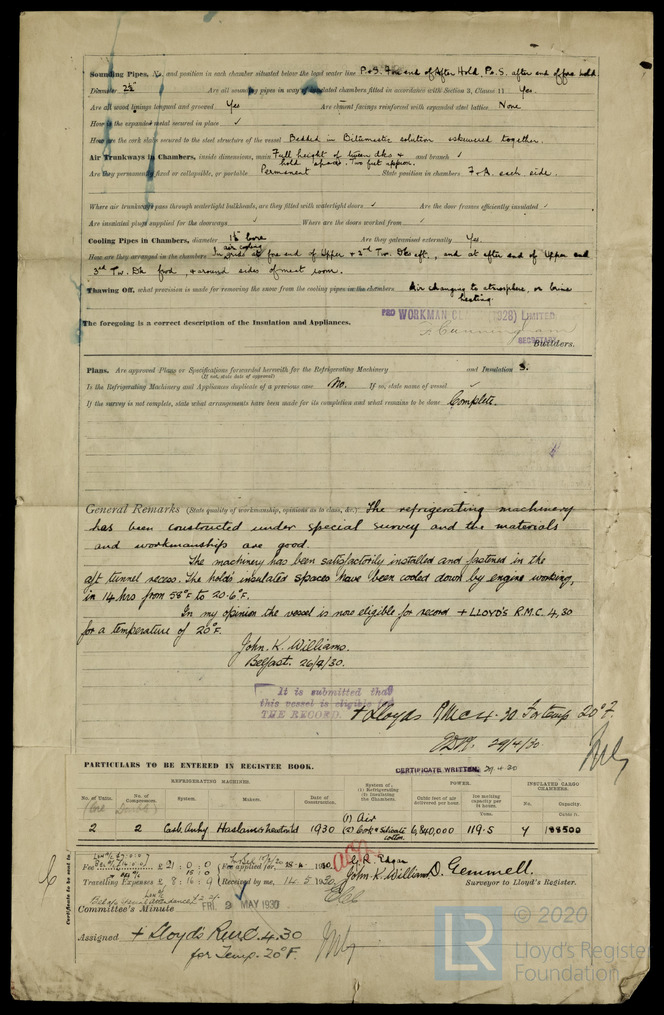 Sounding Pipes, No. and position in each chamber situated below the load water line P&S. Fore end of After Hold. P&S. after end of fore hold
Diameter 2½" Are all sounding pipes in way of insulated chambers fitted in accordance with Section 3, Clause 11 Yes.
Are all wood linings tongued and grooved Yes Are cement facings reinforced with expanded steel lattice. None
How is the expanded metal secured in place ✓
How are the cork slabs secured to the steel structure of the vessel Bedded in Bitumastic solution & skewered together.
Air Trunkways in Chambers, inside dimensions, main Full height of tween dks & and branch ✓
hold spaces. Two feet approx.
Are they permanently fixed or collapsible, or portable Permanent State position in chambers F & A. each side.
Where air trunkways pass through watertight bulkheads, are they fitted with watertight doors ✓ Are the door frames efficiently insulated ✓
Are insulated plugs supplied for the doorways ✓ Where are the doors worked from ✓
Cooling Pipes in Chambers, diameter 1½" bore Are they galvanised externally Yes.
How are they arranged in the chambers In air cooling grids at fore end of Upper & 2nd Tw. Dk aft., and at after end of Upper and
3rd Tw. Dk fwd, & around sides of meat room.
Thawing Off, what provision is made for removing the snow from the cooling pipes in the chambers Air changing to atmosphere, or brine
heating.
The foregoing is a correct description of the Insulation and Appliances.
PRO WORKMAN (1928) LIMITED.
Cunningham
SECRETARY
Builders.
Plans. Are approved Plans or Specifications forwarded herewith for the Refrigerating Machinery and Insulation 3.
(If not, state date of approval)
Is the Refrigerating Machinery and Appliances duplicate of a previous case No. If so, state name of vessel ✓
If the survey is not complete, state what arrangements have been made for its completion and what remains to be done Complete.
General Remarks (State quality of workmanship, opinions as to class, &c.) The refrigerating machinery
has been constructed under special survey and the materials
and workmanship are good.
The machinery has been satisfactorily installed and fastened in the
aft tunnel recess. The holds insulated spaces have been cooled down by engine working,
in 14 hrs from 58°F to 20.6°F.
In my opinion the vessel is now eligible for record + LLOYD'S R.M.C. 4,30
for a temperature of 20°F.
John. K. Williams.
Belfast. 26/4/30.
It is submitted that
this vessel is eligible for
THE RECORD.
+ Lloyds RMC 4.30 For temp 20°F.
29/4/30.
PARTICULARS TO BE ENTERED IN REGISTER BOOK.
CERTIFICATE WRITTEN 29.4.30
REFRIGERATING MACHINES.
System of:
(1) Refrigerating
(2) Insulating
the Chambers.
POWER.
INSULATED CARGO
CHAMBERS.
No. of Units. No. of Compressors. System. Makers. Date of Construction. Cubic feet of air delivered per hour. Ice making capacity per 24 hours. No. Capacity.
Tons. Cubic ft.
2 2 Carb. Anhy Haslam & Newton Ld 1930 (1) Air
(2) Cork & Silicate cotton. 6,840,000 119.5 4 188500
Certificate to be sent to
Fee £21:0:0 Fee applied for, 1930
Travelling Expenses £ 8:16:9 Received by me, 14.5.1930
G. R. Edgar
John. K. Williams D. Gemmell.
Surveyor to Lloyd's Register.
Committee's Minute FRI. 2 MAY 1930
Assigned + Lloyd's RMC. 4.30
for Temp. 20°F.
LR
© 2020
Lloyd's Register
Foundation